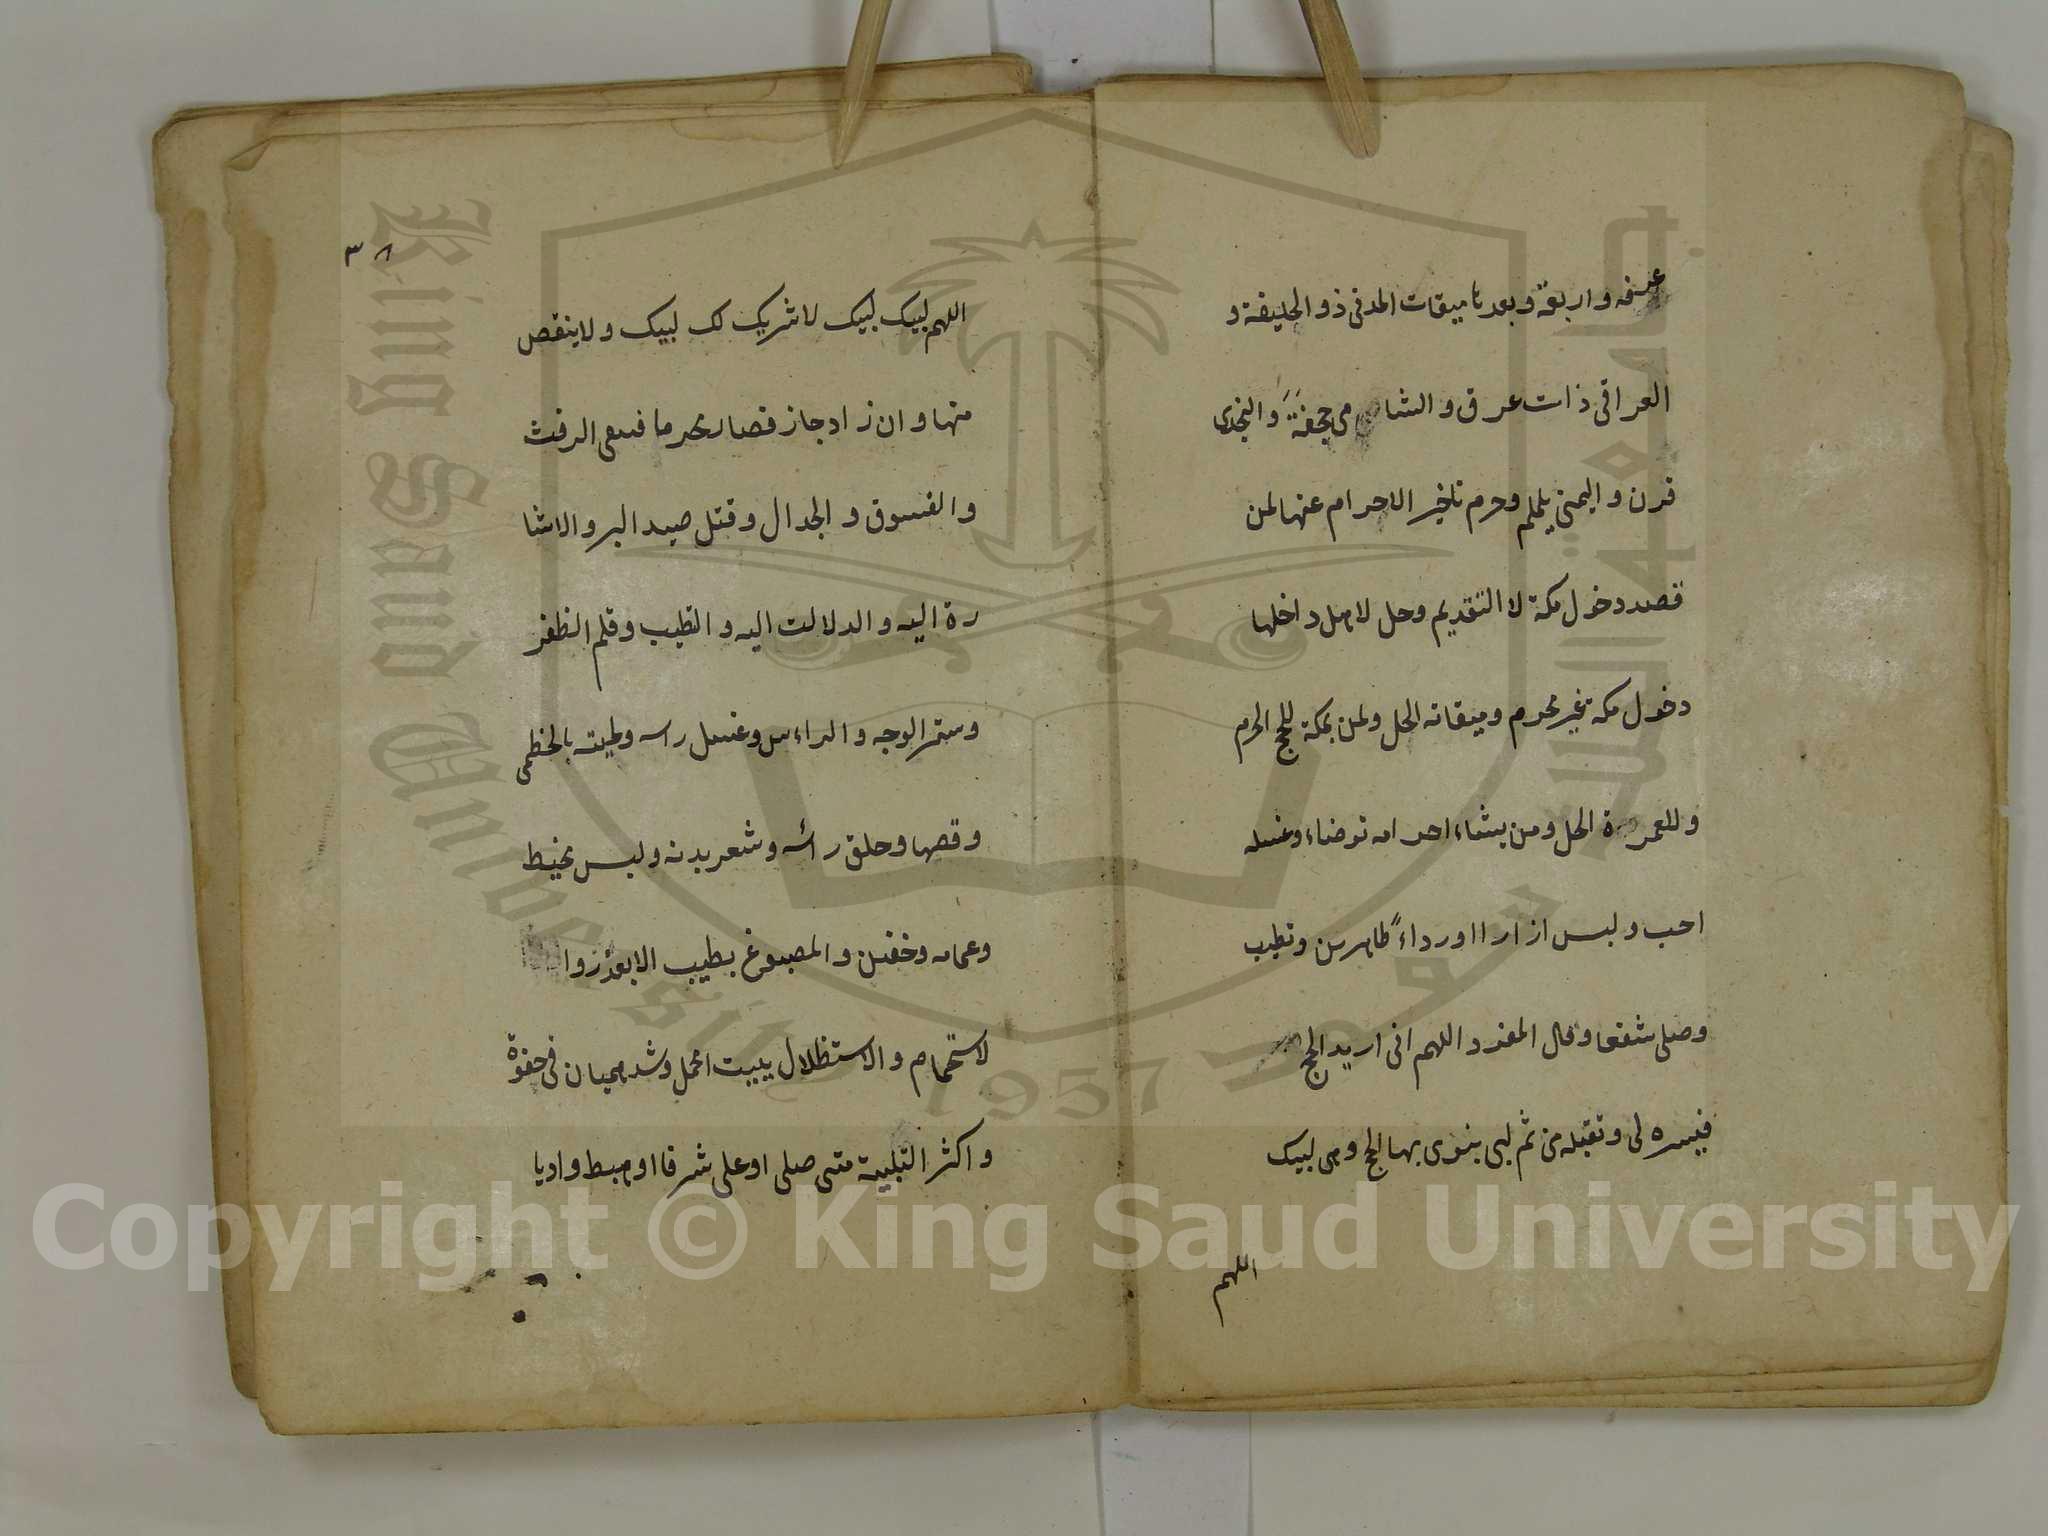 عرفه واربعة وبعدنا ميقات المدنى ذو الحليفة و
العراقى ذات عرق والشامى جحفة والنجدى
قرن واليمنى يلملم وحرم تاخير الاحرام عنها لمن
قصد دخول مكة لا التقديم وحل لاهل داخلها
دخول مكة غير محرم وميقاته الحل ولمن بمكة للحج الحرم
وللعمرة الحل ومن يشاء احرامه توضاء وغسله
احب ولبس ازارا اورداءً طاهرين وتطيب
وصلى شفعا وقال المفرد اللهم انى اريد الحج
فيسره لى وتقبله منى ثم لبى ينوى بها الحج وهى لبيك
اللهم
٣٨
اللهم لبيك لبيك لا شريك لك لبيك ولا ينقص
منها وان زاد جاز فصار محرما فيتقى الرفث
والفسوق والجدال وقتل صيد البر والاشا
رة اليه والدلالت اليه والتطيب وقلم الظفر
وستر الوجه والراءس وغسل راسه ولحيته بالخطمى
وقصها وحلق رأسه وشعر بدنه ولبس مخيط
وعمامه وخفين والمصبوغ بطيب الا بعد زوا
لا ستحمام والاستظلال ببيت اومحمل وشد هميان فى حقوة
واكثر التلبية متى صلى اوعلى شرفا اوهبط واديا
Copyright © King Saud University
جامعة الملك سعود
King Saud University
1957